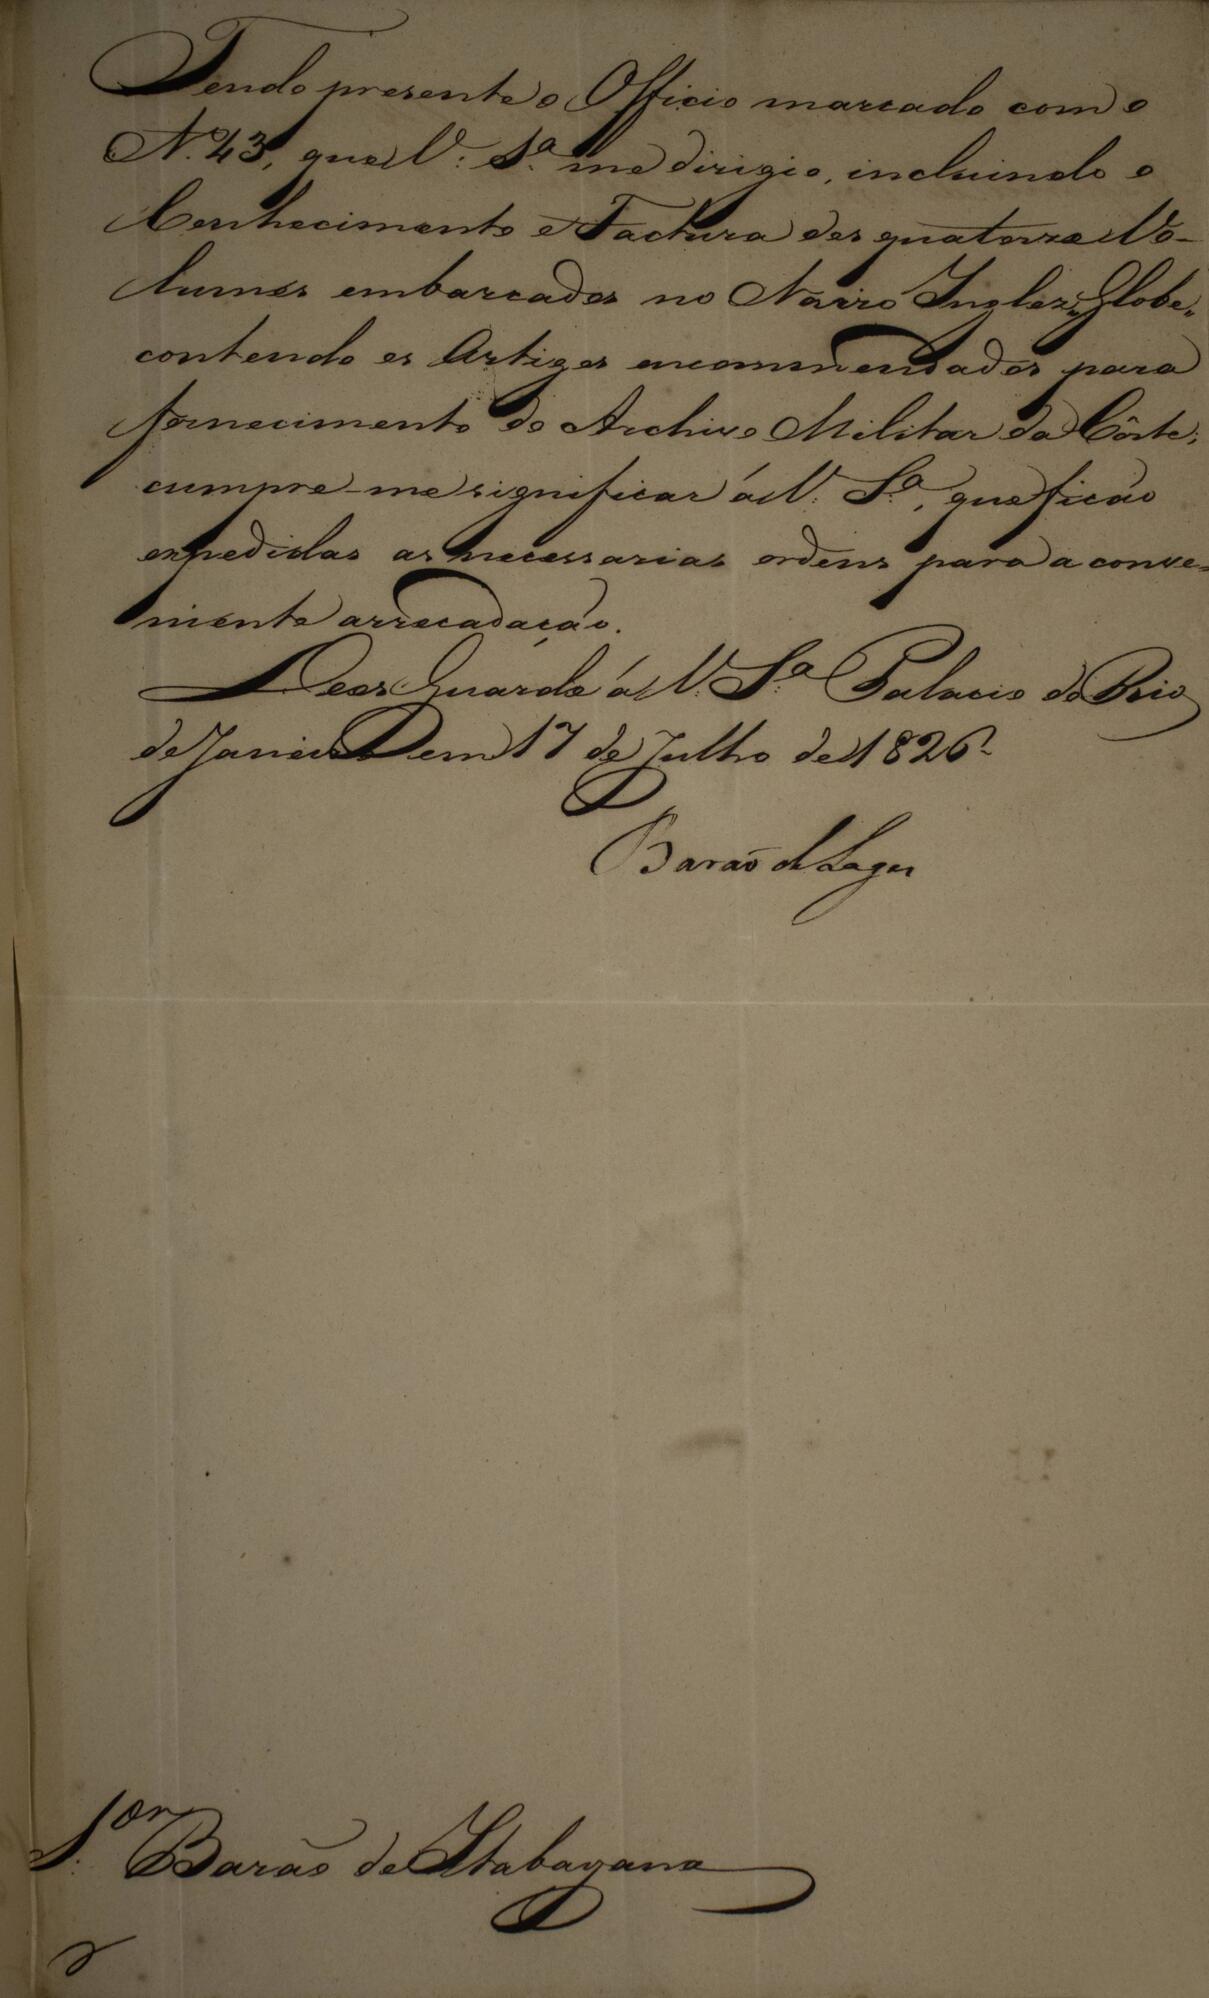 Tendo presente o Officio marcado com o
N.º 43, que V: S.ª me dirigio, incluindo o
Conhecimento e Factura dos quatorze Vo-
lumes embarcados no Navio Inglez „Globe„
contendo os Artigos encommendados para
fornecimento do Archivo Militar da Côrte;
cumpre-me significar á V: S.ª, que ficão
expedidas as necessarias ordens para a conve-
niente arrecadação.
Deos Guarde á V. S.ª Palacio do Rio
de Janeiro em 17 de Julho de 1826.
Barão de Lages
S.or Barão de Itabayana